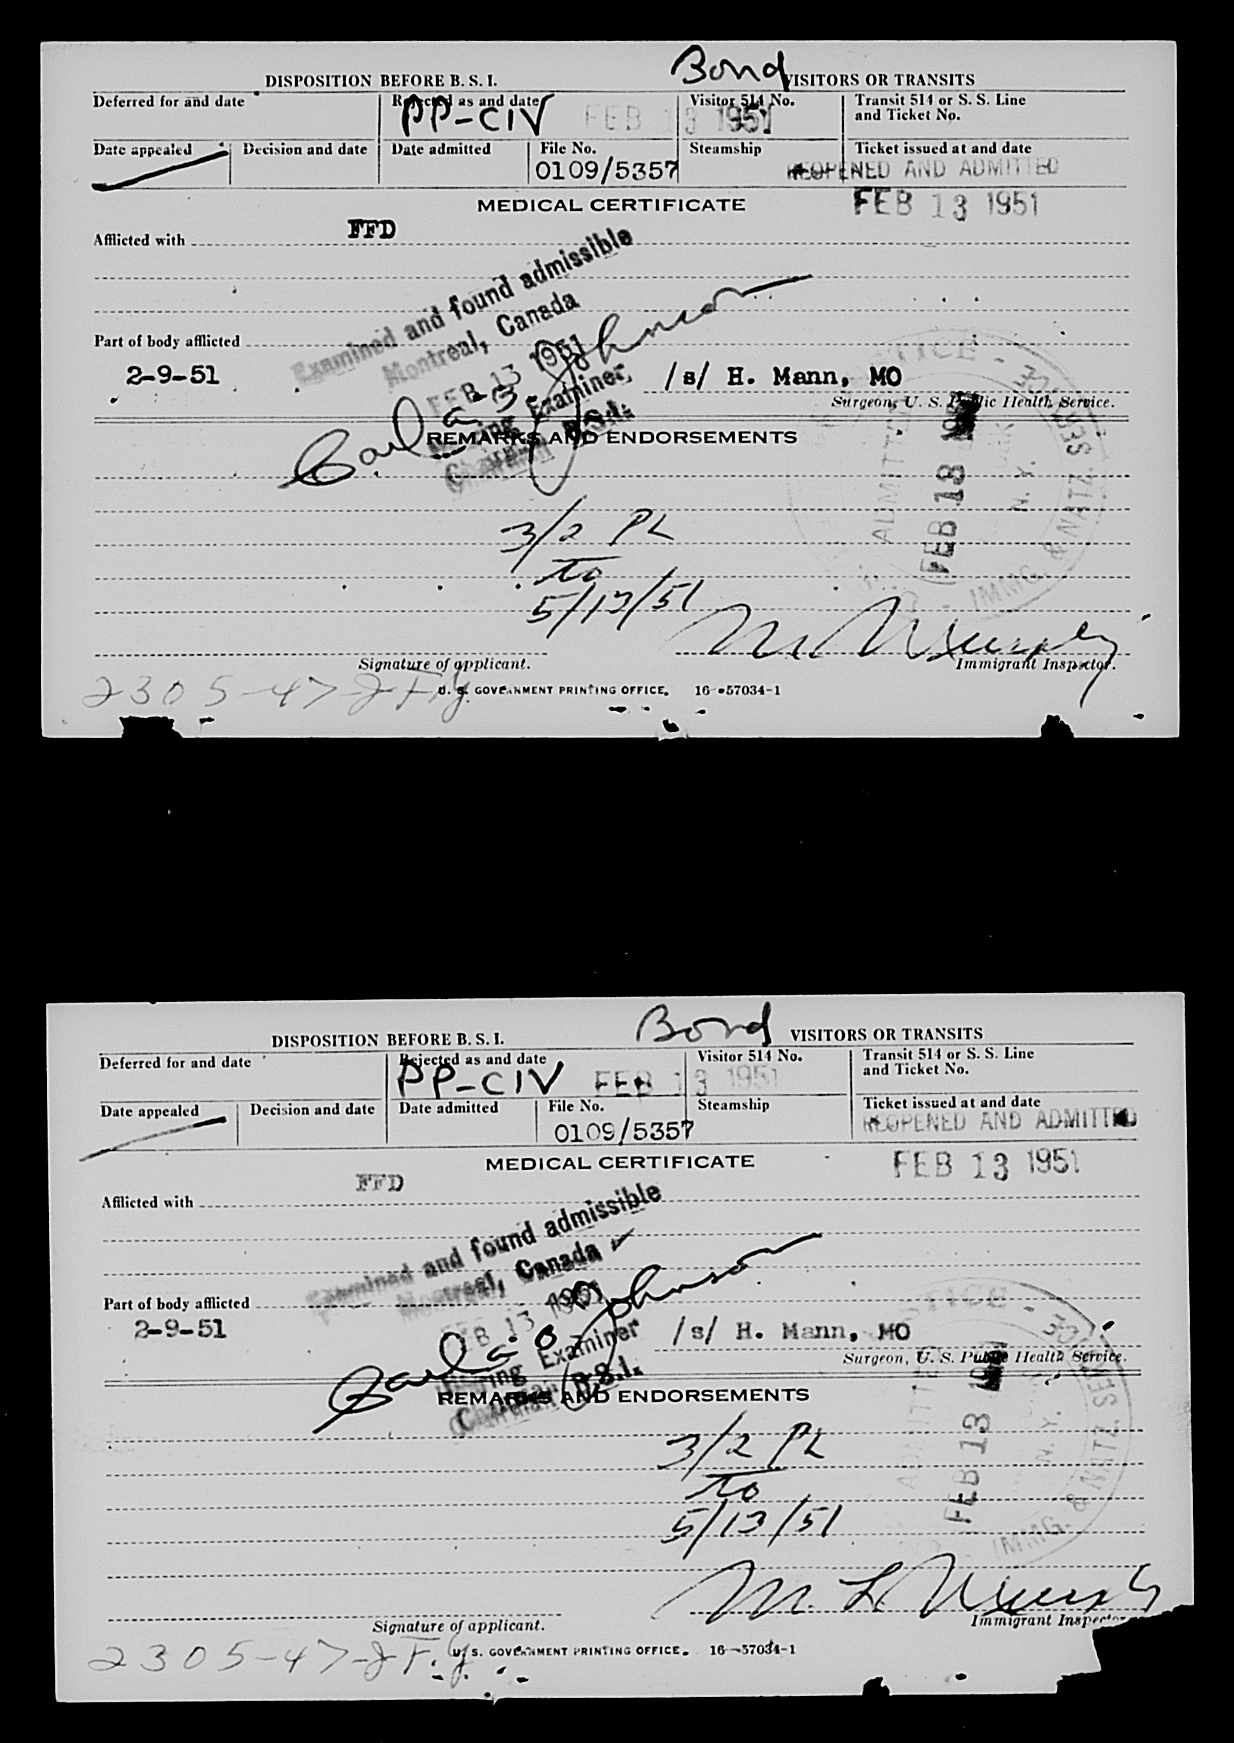 Bond
DISPOSITION BEFORE B. S. I. VISITORS OR TRANSITS
Deferred for and date Rejected as and date Visitor 514 No. Transit 514 or S. S. Line
and Ticket No.
PP-CIV FEB 13 1951
Date appealed Decision and date Date admitted File No. Steamship Ticket issued at and date
0109/5357 REOPENED AND ADMITTED
MEDICAL CERTIFICATE FEB 13 1951
FFD
Afflicted with
Examined and found admissible
Montreal, Canada
FEB 13 1951
Part of body afflicted
2-9-51 /s/ H. Mann, MO
Surgeon, U. S. Public Health Service.
Hearing Examiner
Chairman B.S.I.
REMARKS AND ENDORSEMENTS
ADMITTED
FEB 13 1951
N. Y.
IMMG. & NATZ. SERVICE
3/2 PL
to
5/13/51
Signature of applicant. Immigrant Inspector.
2305-47
U. S. GOVERNMENT PRINTING OFFICE. 16-57034-1
Bond
DISPOSITION BEFORE B. S. I. VISITORS OR TRANSITS
Deferred for and date Rejected as and date Visitor 514 No. Transit 514 or S. S. Line
and Ticket No.
PP-CIV FEB 13 1951
Date appealed Decision and date Date admitted File No. Steamship Ticket issued at and date
0109/5357 REOPENED AND ADMITTED
MEDICAL CERTIFICATE FEB 13 1951
FFD
Afflicted with
Examined and found admissible
Montreal, Canada
FEB 13 1951
Part of body afflicted
2-9-51 /s/ H. Mann, MO
Surgeon, U. S. Public Health Service.
Hearing Examiner
Chairman B.S.I.
REMARKS AND ENDORSEMENTS
FEB 13 1951
N. Y.
IMMG. & NATZ. SERVICE
3/2 PL
to
5/13/51
Signature of applicant. Immigrant Inspector
2305-47
U. S. GOVERNMENT PRINTING OFFICE. 16-57034-1